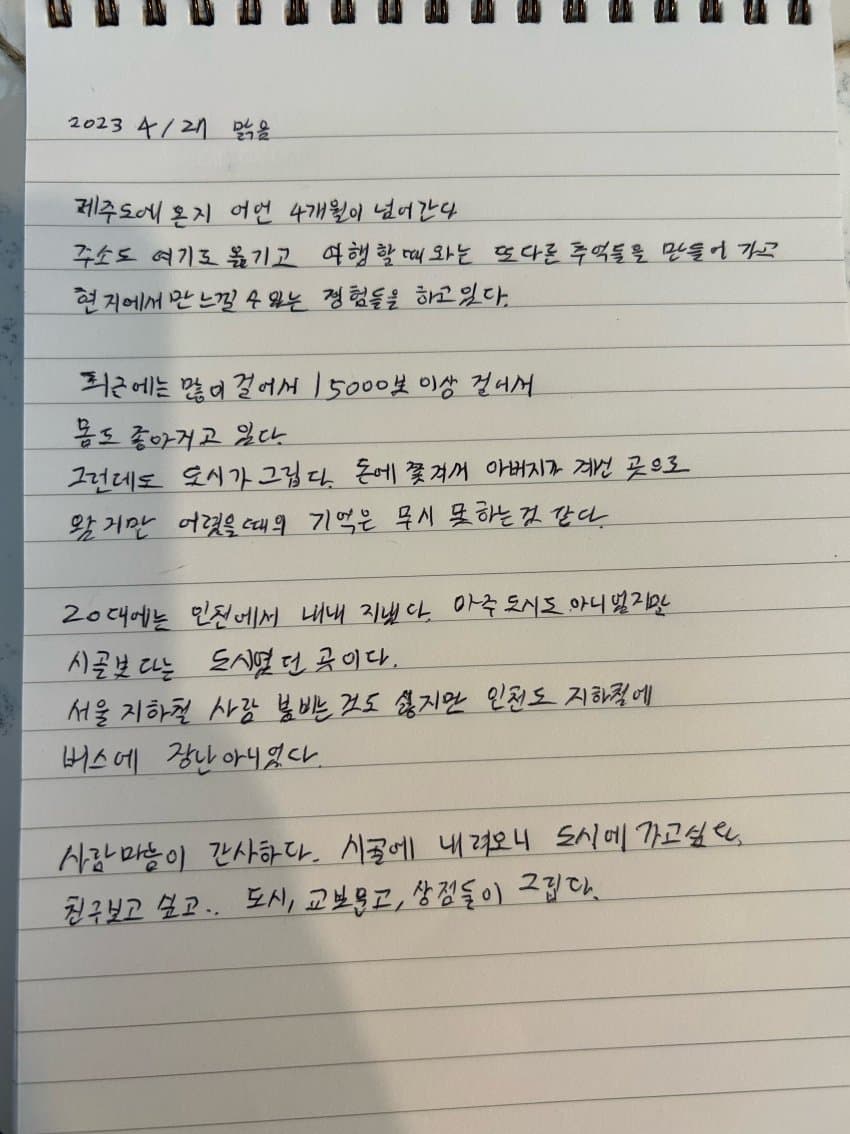 2023 4/27 맑음
제주도에 온지 어언 4개월이 넘어간다
주소도 여기로 옮기고 여행할때와는 또다른 추억들을 만들어 가고
현지에서만 느낄 수 있는 경험들을 하고있다.
최근에는 많이 걸어서 15000보 이상 걸어서
몸도 좋아지고 있다.
그런데도 도시가 그립다. 돈에 쫓겨서 아버지가 계신 곳으로
왔지만 어렸을때의 기억은 무시 못하는것 같다.
20대에는 인천에서 내내 지냈다. 아주 도시도 아니였지만
시골보다는 도시였던 곳이다.
서울 지하철 사람 붐비는것도 싫지만 인천도 지하철에
버스에 장난아니었다.
사람마음이 간사하다. 시골에 내려오니 도시에 가고싶다.
친구보고 싶고.. 도시, 교보문고, 상점들이 그립다.